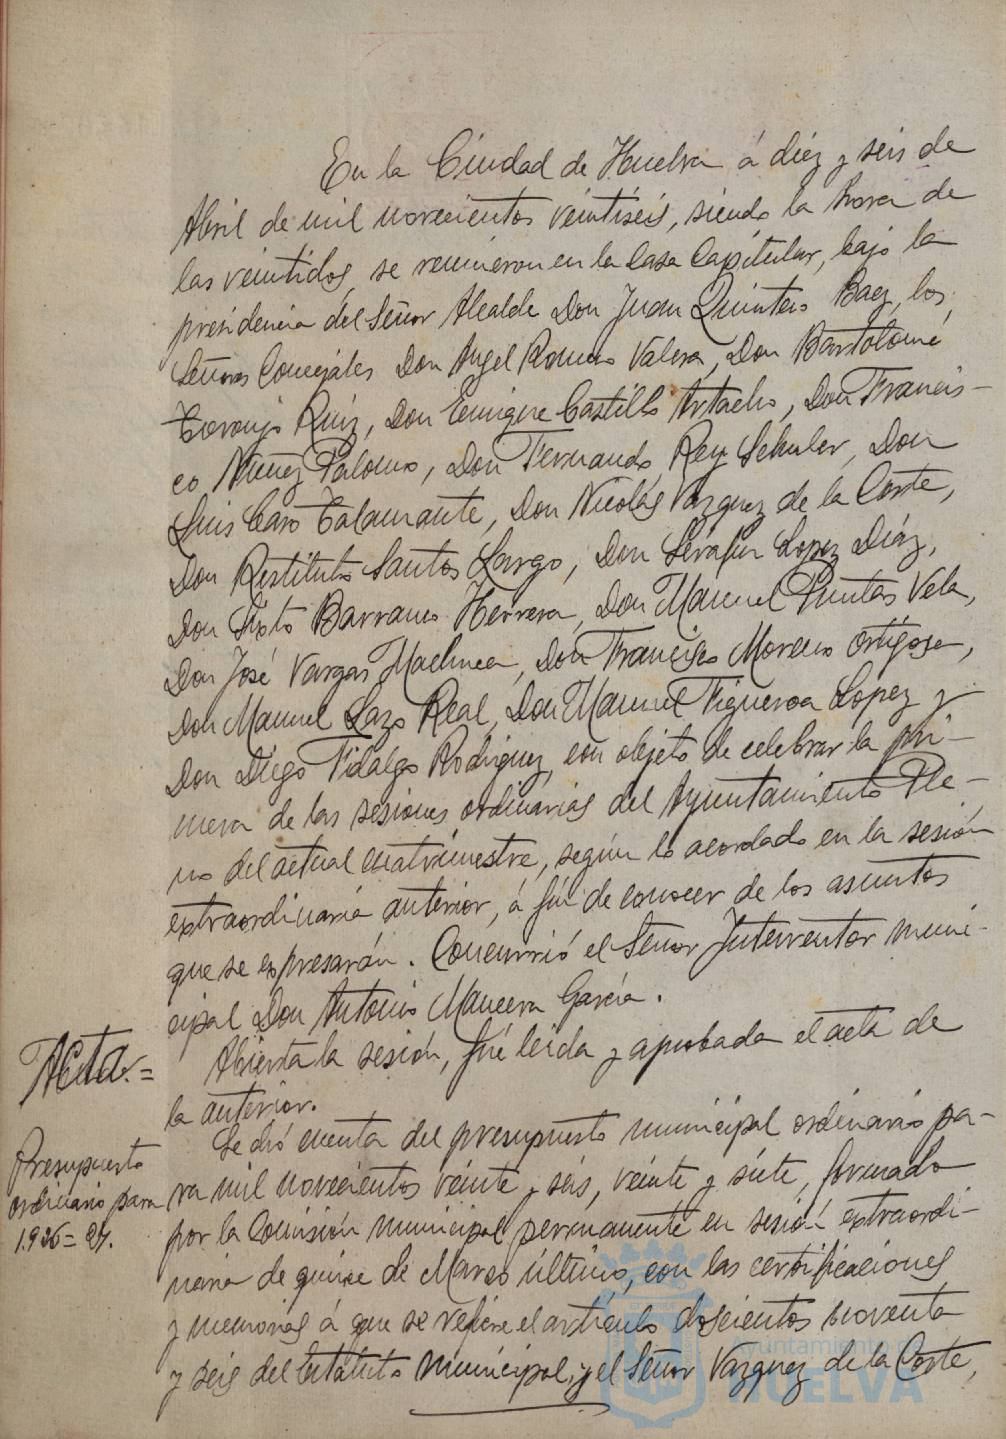 En la Ciudad de Huelva á diéz y seis de
Abril de mil novecientos veintiséis, siendo la hora de
las veintidos, se reunieron en la Casa Capitular, bajo la
presidencia del Señor Alcalde Don Juan Quintero Baez, los
Señores Concejales Don Angel Romero Valera, Don Bartolomé
Toronjo Ruiz, Don Enrique Castillo Artacho, Don Francis-
co Nuñez Palomo, Don Fernando Rey Schuler, Don
Luis Caro Talaurante, Don Nicolás Vazquez de la Corte,
Don Restituto Santos Largo, Don Serafin Lopez Diáz,
Don Sixto Barranco Herrera, Don Manuel Puntas Vela,
Don José Vargas Machuca, Don Francisco Moreno Ortigosa,
Don Manuel Lazo Real, Don Manuel Figueroa Lopez y
Don Diego Fidalgo Rodriguez, con objeto de celebrar la pri-
mera de las sesiones ordinarias del Ayuntamiento Ple-
no del actual cuatrimestre, según lo acordado en la sesión
extraordinaria anterior, á fin de conocer de los asuntos
que se expresarán. Concurrió el Señor Interventor muni-
cipal Don Antonio Mancera García.
Acta.=
Abierta la sesión, fué leida y aprobada el acta de
la anterior.
Presupuesto
ordinario para
1.926=27.
Se dió cuenta del presupuesto municipal ordinario pa-
ra mil novecientos veinte y seis, veinte y siete, formado
por la Comisión municipal permanente en sesión extraordi-
naria de quince de Marzo último, con las certificaciones
y memorias á que se refiere el artículo doscientos noventa
y seis del Estatuto municipal, y el Señor Vazquez de la Corte,
Ayuntamiento de
HUELVA